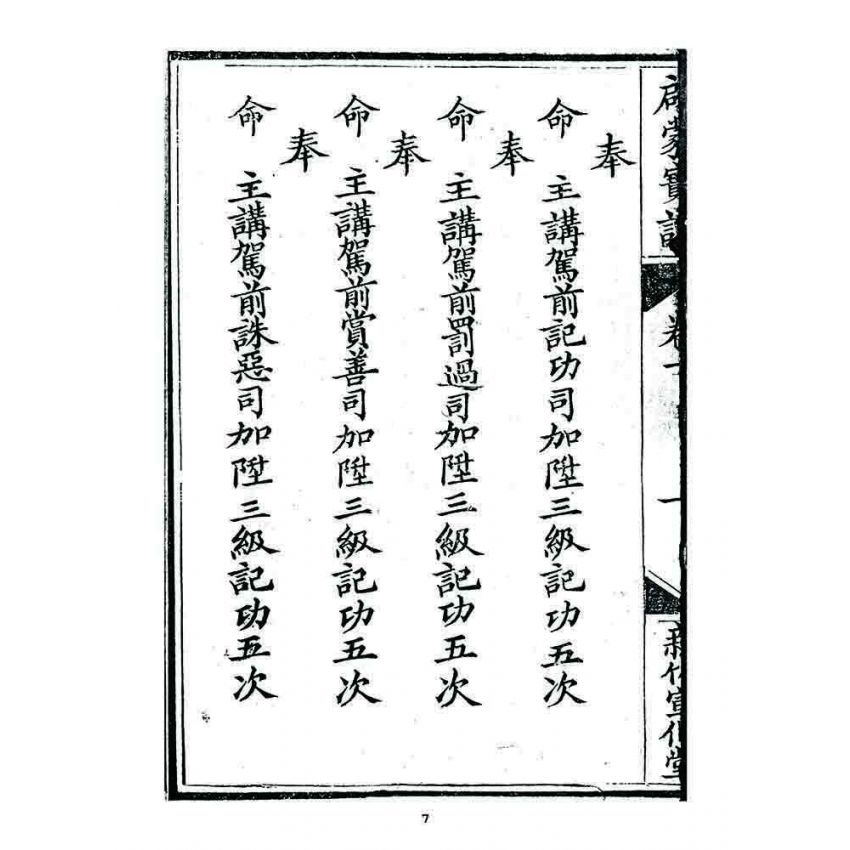 啟蒙寶訓
卷
新竹宣化堂
奉
命 主講駕前記功司加陞三級記功五次
奉
命 主講駕前罰過司加陞三級記功五次
奉
命 主講駕前賞善司加陞三級記功五次
奉
命 主講駕前誅惡司加陞三級記功五次
7